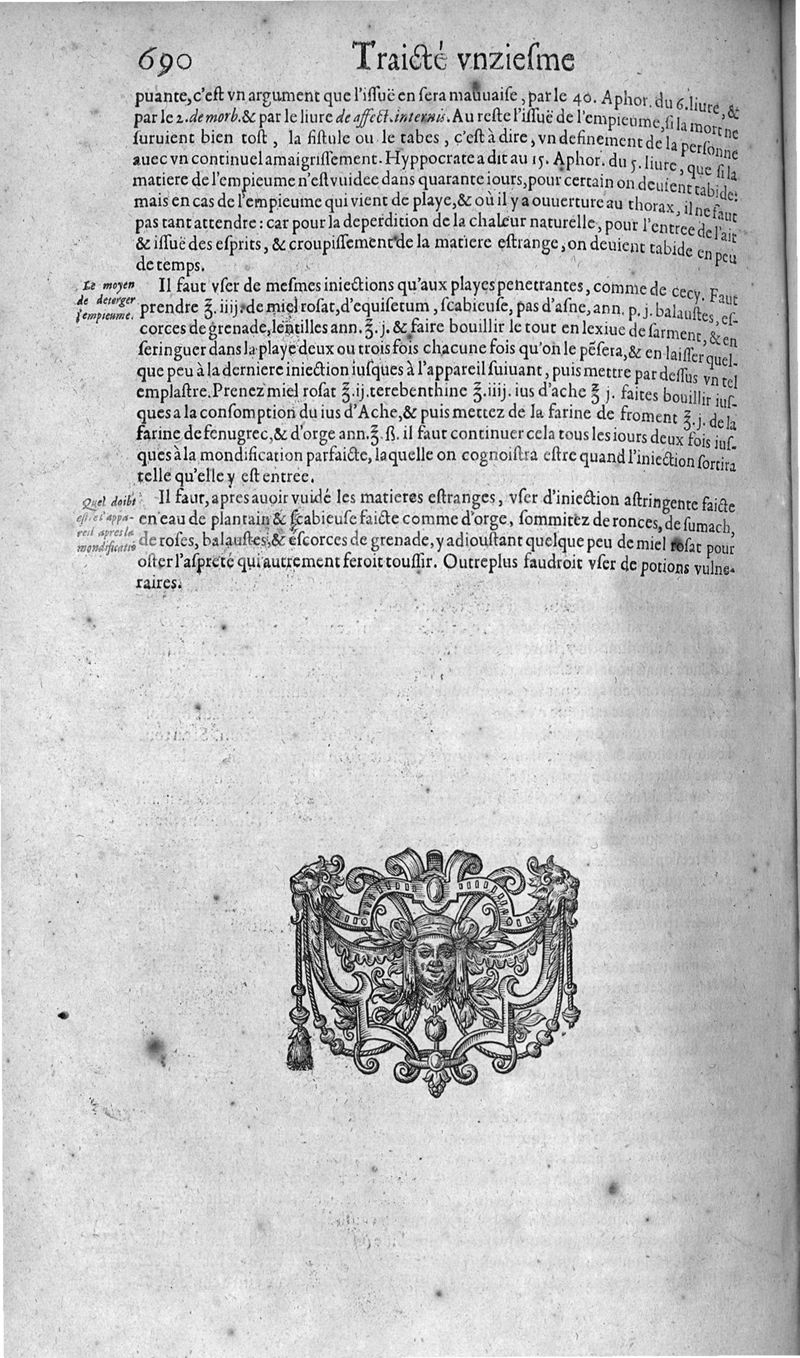 690 Traicté vnziesme
puante, c'est vn argument que l'issuë en sera mauuaise, par le 40. Aphor. du 6. liure, &
par le 2. de morb. & par le liure de affect. internis. Au reste l'issuë de l'empieume, si la mort ne
suruient bien tost, la fistule ou le tabes, c'est à dire, vn definement de la personne
auec vn continuel amaigrissement. Hyppocrate a dit au 15. Aphor. du 5. liure, que si la
matiere de l'empieume n'est vuidee dans quarante iours, pour certain on deuient tabide:
mais en cas de l'empieume qui vient de playe, & où il y a ouuerture au thorax, il ne faut
pas tant attendre: car pour la deperdition de la chaleur naturelle, pour l'entree de l'air
& issuë des esprits, & croupissement de la matiere estrange, on deuient tabide en peu
de temps.
Le moyen
de deterger
l'empieume.
Il faut vser de mesmes iniections qu'aux playes penetrantes, comme de cecy. Faut
prendre ℥. iiij. de miel rosat, d'equisetum, scabieuse, pas d'asne, ann. p. j. balaustes, es-
corces de grenade, lentilles ann. ℥. j. & faire bouillir le tout en lexiue de sarment, & en
seringuer dans la playe deux ou trois fois chacune fois qu'on le pẽsera, & en laisser quel-
que peu à la derniere iniection iusques à l'appareil suiuant, puis mettre par dessus vn tel
emplastre. Prenez miel rosat ℥. ij. terebenthine ℥. iiij. ius d'ache ℥ j. faites bouillir ius-
ques a la consomption du ius d'Ache, & puis mettez de la farine de froment ℥. j. de la
farine de fenugrec, & d'orge ann. ℥. ß. il faut continuer cela tous les iours deux fois ius-
ques à la mondification parfaicte, laquelle on cognoistra estre quand l'iniection sortira
telle qu'elle y est entree.
Quel doibt
estre l'appa-
reil apres la
mondificatiõ
Il faut, apres auoir vuidé les matieres estranges, vser d'iniection astringente faicte
en eau de plantain & scabieuse faicte comme d'orge, sommitez de ronces, de sumach,
de roses, balaustes, & escorces de grenade, y adioustant quelque peu de miel rosat pour
oster l'aspreté qui autrement feroit toussir. Outreplus faudroit vser de potions vulne-
raires.